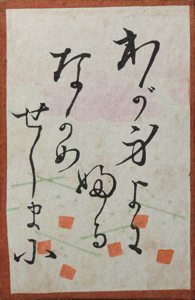 わが身よに
ふる
なかめ
せしまに